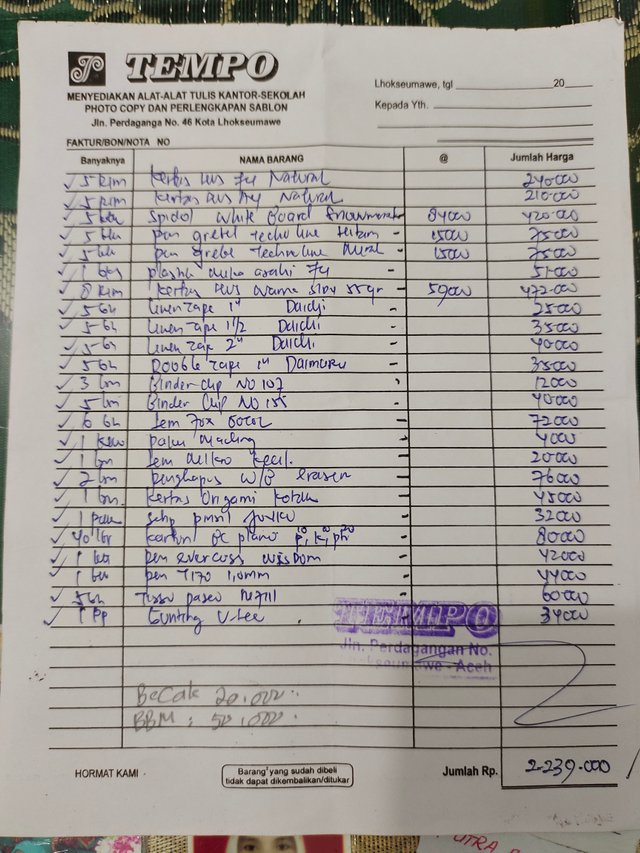 TEMPO
MENYEDIAKAN ALAT-ALAT TULIS KANTOR-SEKOLAH
PHOTO COPY DAN PERLENGKAPAN SABLON
Jln. Perdaganga No. 46 Kota Lhokseumawe
Lhokseumawe, tgl 20
Kepada Yth.
FAKTUR/BON/NOTA NO
Banyaknya NAMA BARANG @ Jumlah Harga
5 Rim Kertas F4 Natural 240000
5 Rim Kertas Natural 210000
5 Spidol White Board Snowman 84000 420.000
5 pen Techno line 15000 75000
5 pen Techno line 15000 75000
1 plastik F4 51000
8 Rim Kertas warna 55gr 59000 472000
5 bh Linen Tape 1" Daichi 25000
5 bh Linen Tape 1 1/2 Daichi 35000
5 bh Linen Tape 2" Daichi 40000
5 bh Double Tape 1" Daimaru 35000
3 Binder Clip NO 107 12000
5 Binder Clip NO 155 40000
6 bh Lem Fox 72000
1 paku mading 4000
1 Lem kecil. 20000
2 penghapus W/B eraser 76000
1 Kertas Origami 45000
1 32000
40 lbr karton plano 80000
1 pen evercoss WISDOM 42000
1 pen T170 1,0mm 44000
5 bh Tissu paseo 60000
1 Gunting V-tec 34000
TEMPO
Jln. Perdagangan No.
- Aceh
BeCak 20.000
BBM : 50.000
HORMAT KAMI Barang yang sudah dibeli Jumlah Rp. 2.239.000
tidak dapat dikembalikan/ditukar